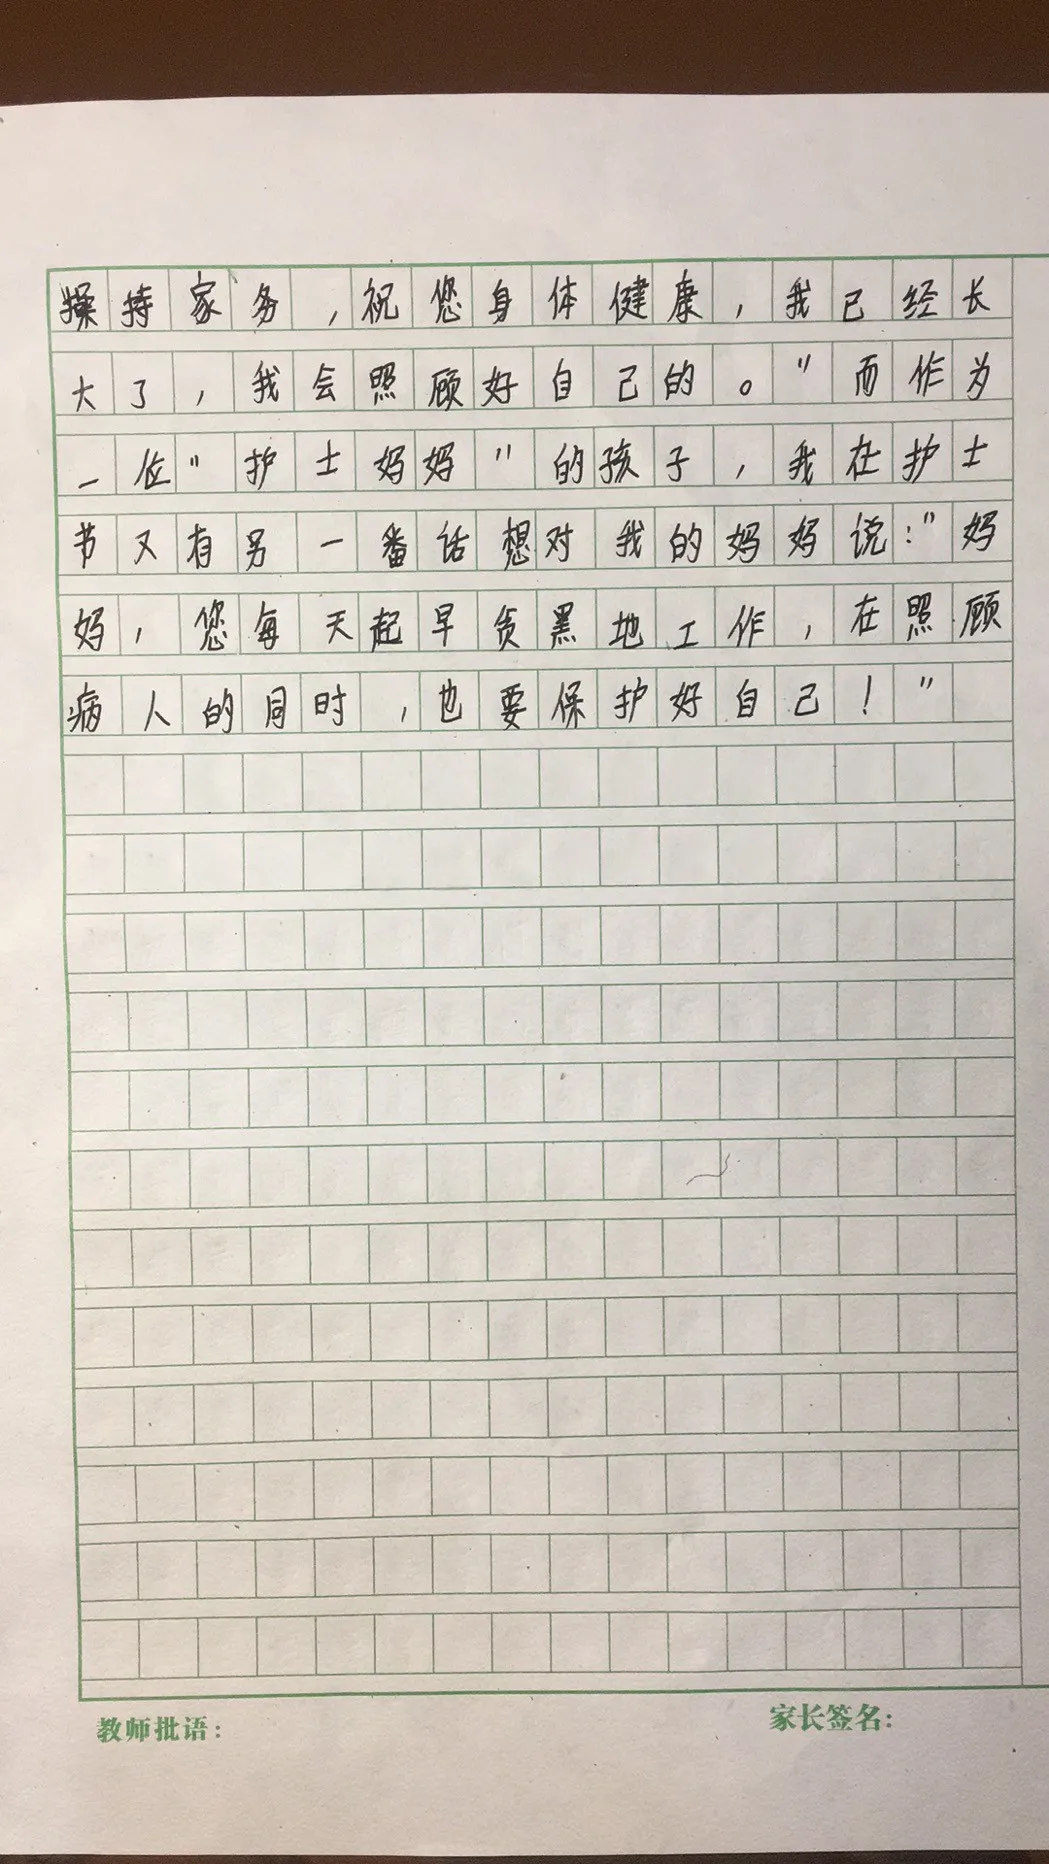 操持家务，祝您身体健康，我已经长
大了，我会照顾好自己的。”而作为
一位“护士妈妈”的孩子，我在护士
节又有另一番话想对我的妈妈说：“妈
妈，您每天起早贪黑地工作，在照顾
病人的同时，也要保护好自己！”
教师批语：
家长签名：